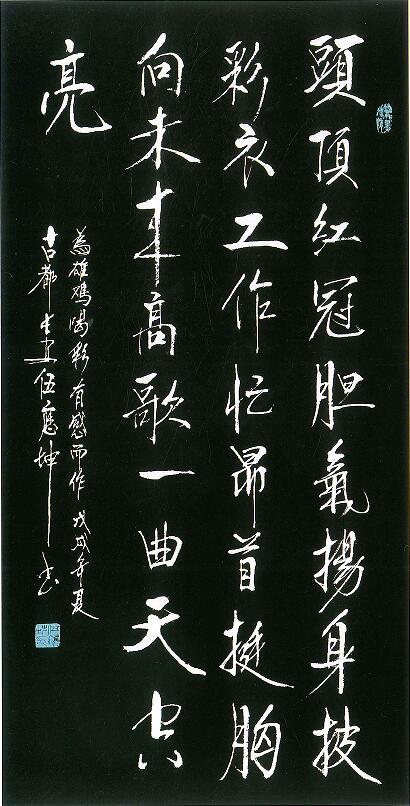 頭頂紅冠胆氣揚身披
彩衣工作忙昂首挺胸
向未来高歌一曲天空
亮
為雄鸡喝彩有感而作戊戌年夏
古都伍應坤书